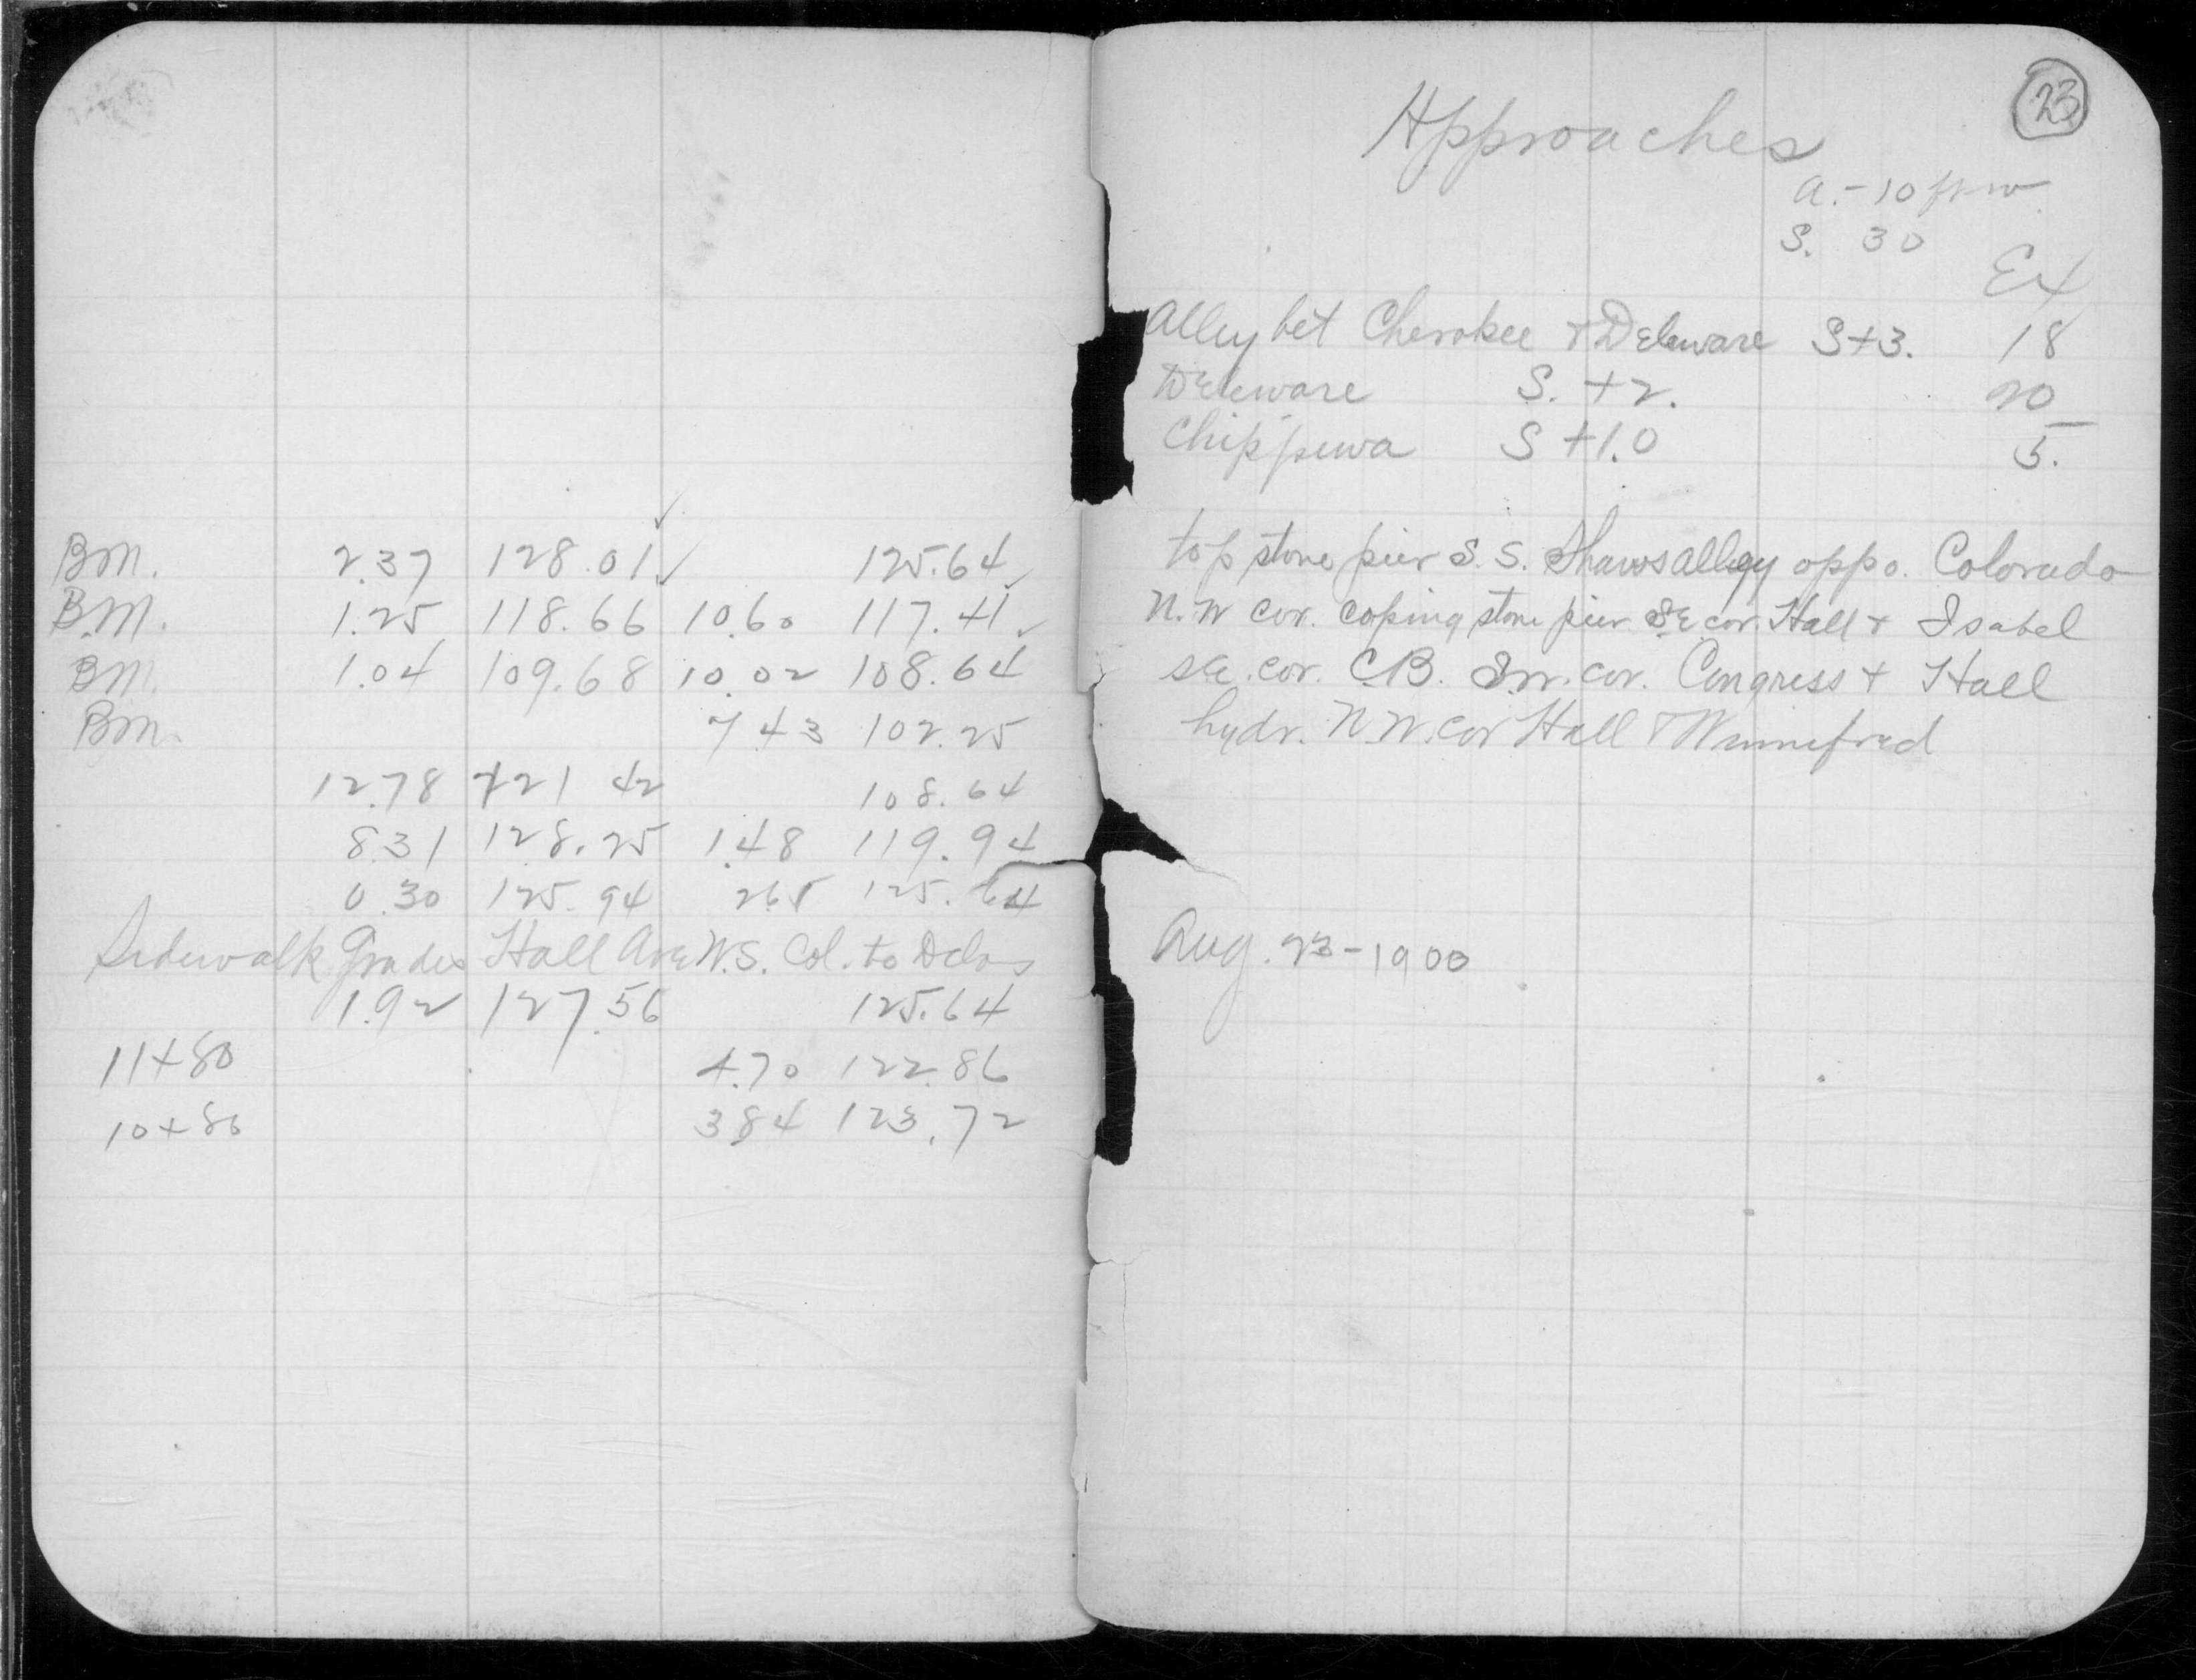 BM. 2.37 128.01 125.64
B.M. 1.25 118.66 10.60 117.41
BM. 1.04 109.68 10.02 108.64
BM. 7 43 102.25
12.78 121 42 108.64
8.31 128.25 1.48 119.94
0.30 125.94 2.61 125.64
Sidewalk Grades Hall Ave W.S. Col. to Dela
1.92 127.56 125.64
11+80 4.70 122.86
10+80 3.84 123.72
23
Approaches
a.-10 ft w
S. 30
Ex
Alley bet Cherokee & Delaware S+3. 18
Delaware S. +2. 20
Chippewa S +1.0 5.
top stone pier S.S. Shaws alley oppo. Colorado
N.W cor. coping stone pier SE cor Hall & Isabel
SE. cor. CB. SW. cor. Congress & Hall
hydr. N.W. cor Hall & Winnefred
Aug. 23-1900